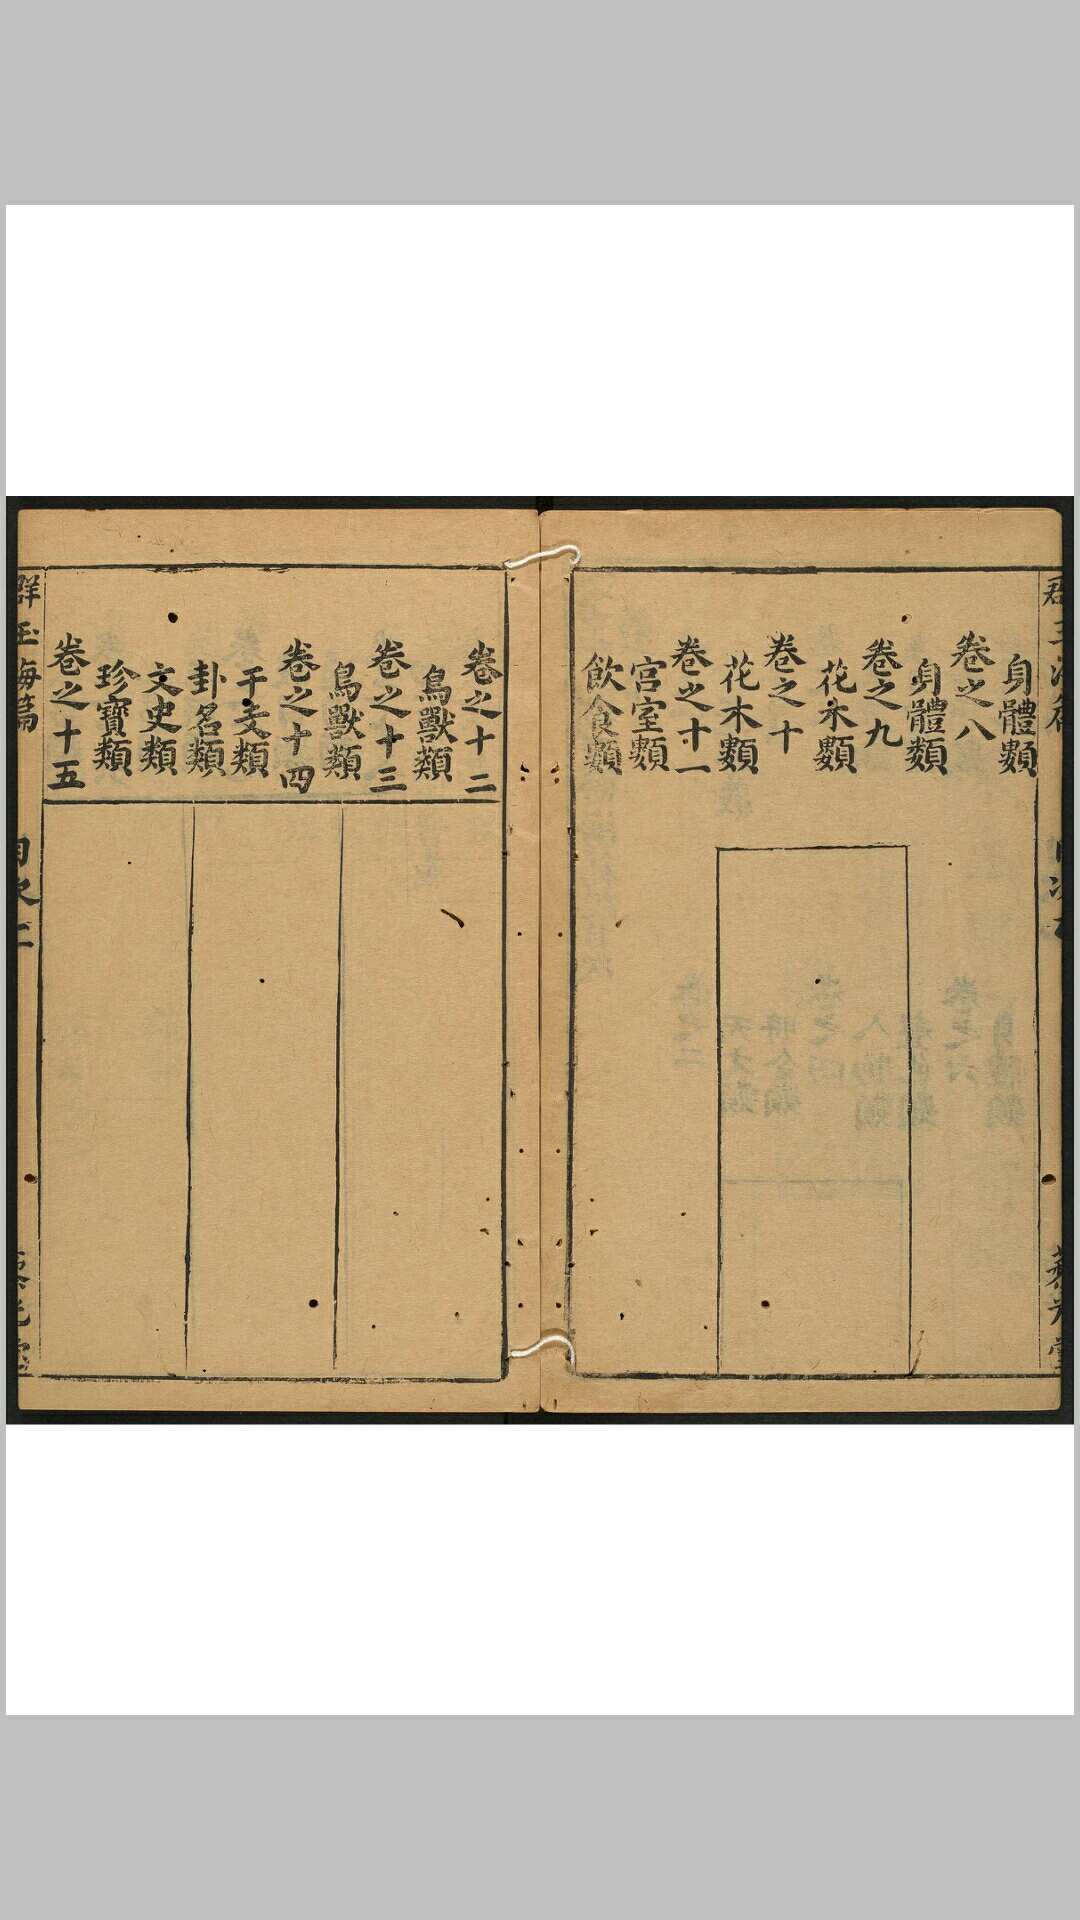 身體類
卷之八
身體類
卷之九
花木類
卷之十
花木類
卷之十一
宮室類
飲食類
卷之十二
鳥獸類
卷之十三
鳥獸類
卷之十四
干支類
卦名類
文史類
珍寶類
卷之十五
群玉海篇 目次 二